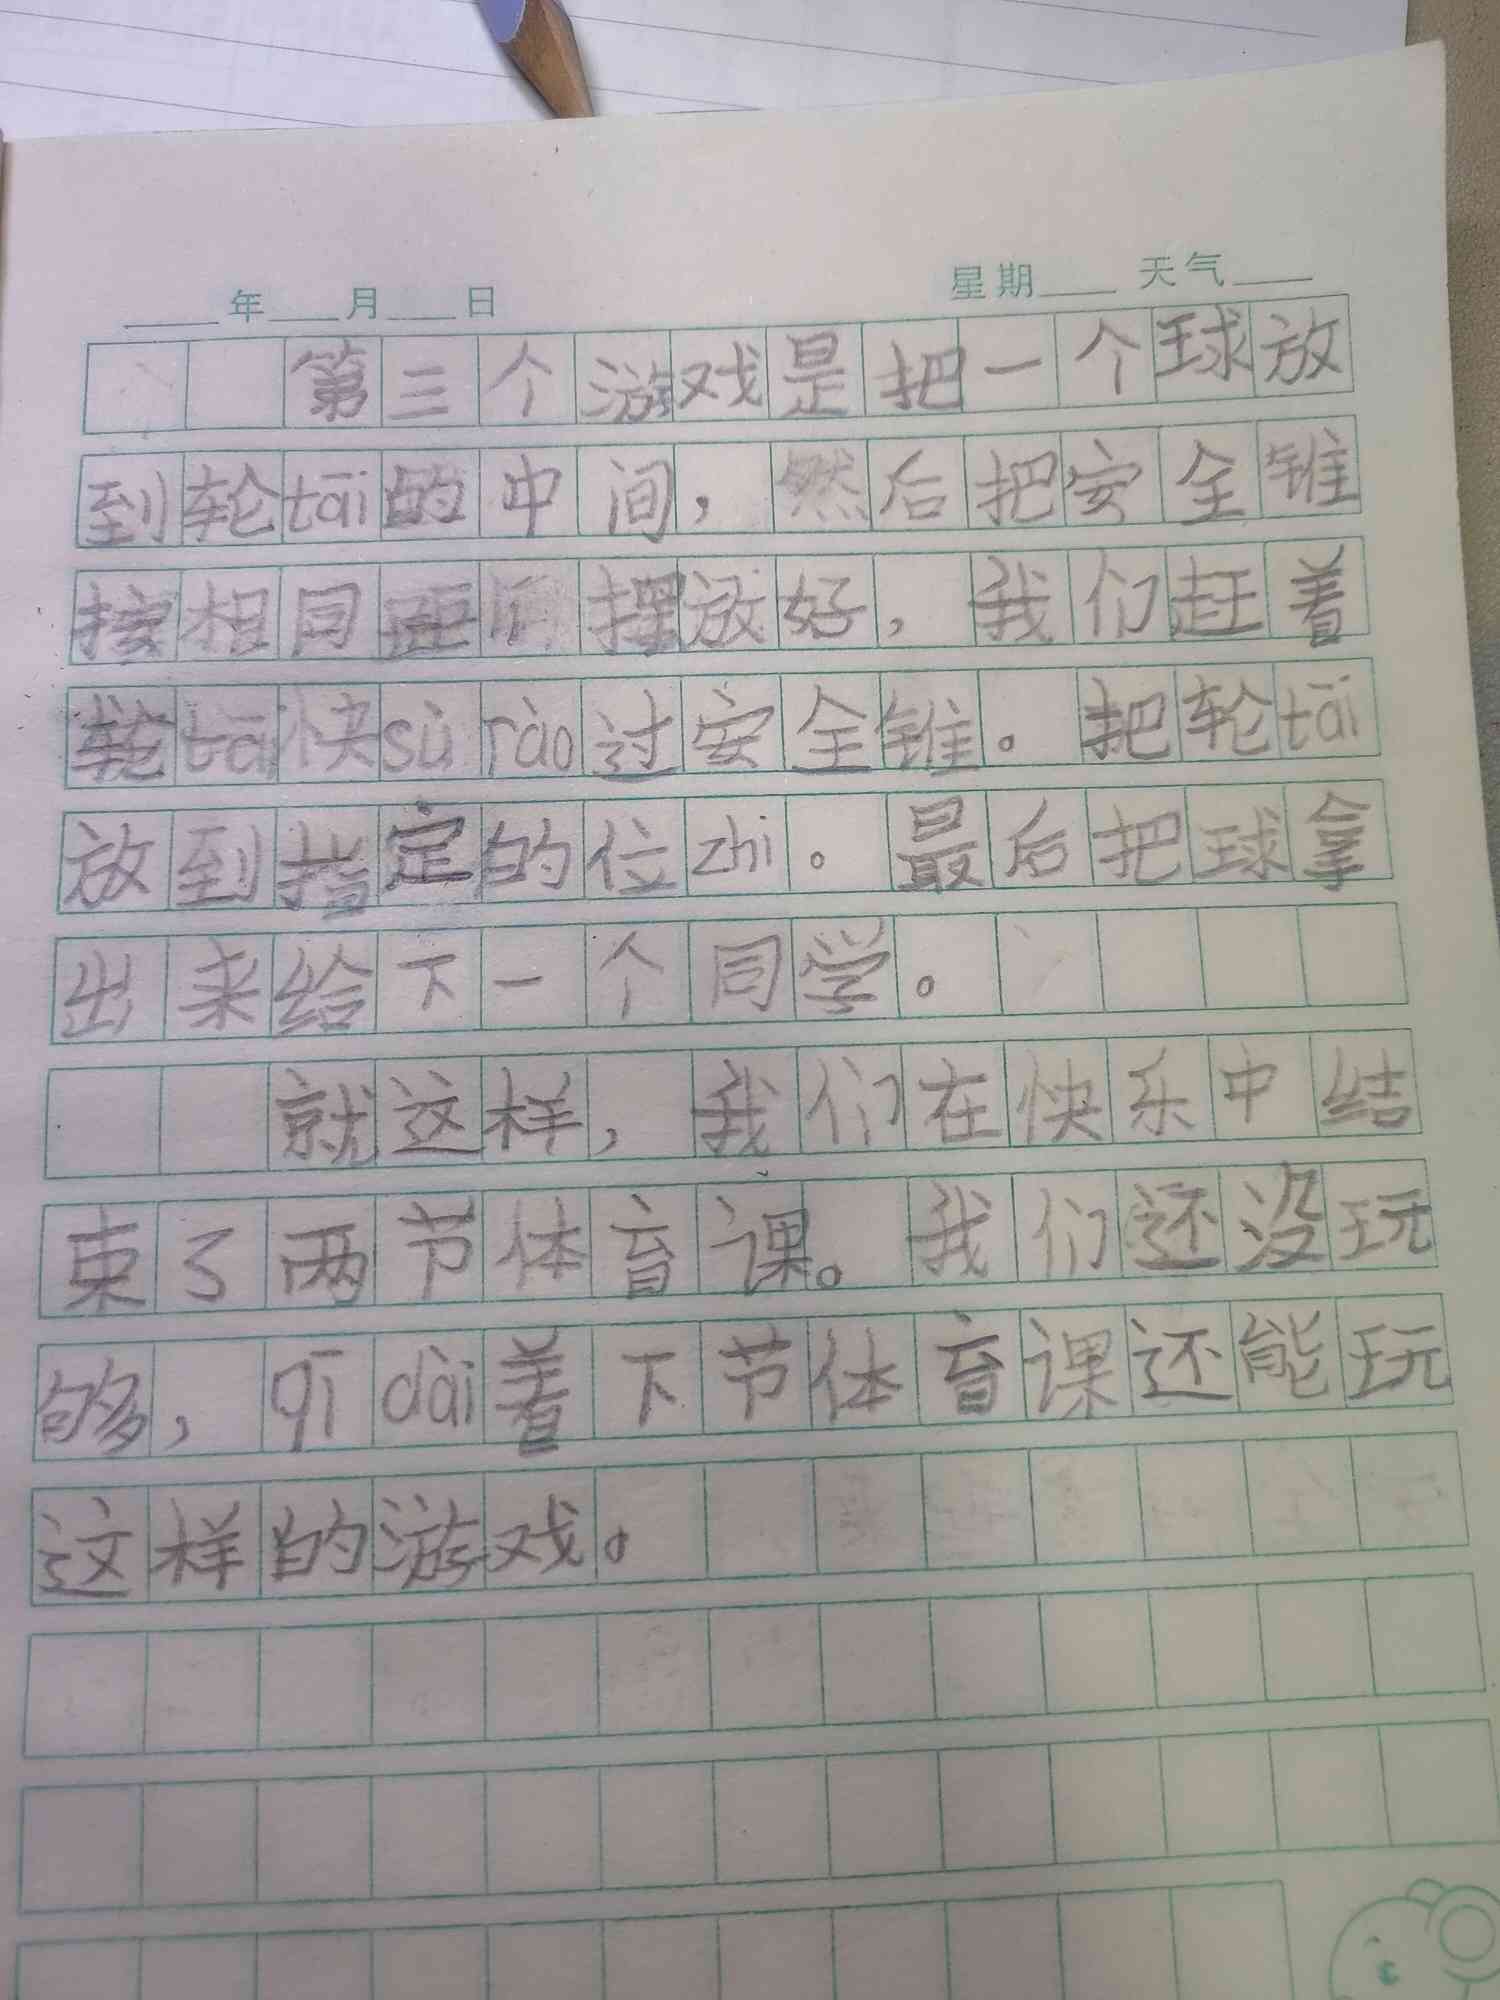 年 月 日 星期 天气
第三个游戏是把一个球放
到轮tāi的中间，然后把安全锥
按相同距间摆放好，我们赶着
轮tāi快sù rào过安全锥。把轮tāi
放到指定的位zhi。最后把球拿
出来给下一个同学。
就这样，我们在快乐中结
束了两节体育课。我们还没玩
够，qī dài着下节体育课还能玩
这样的游戏。